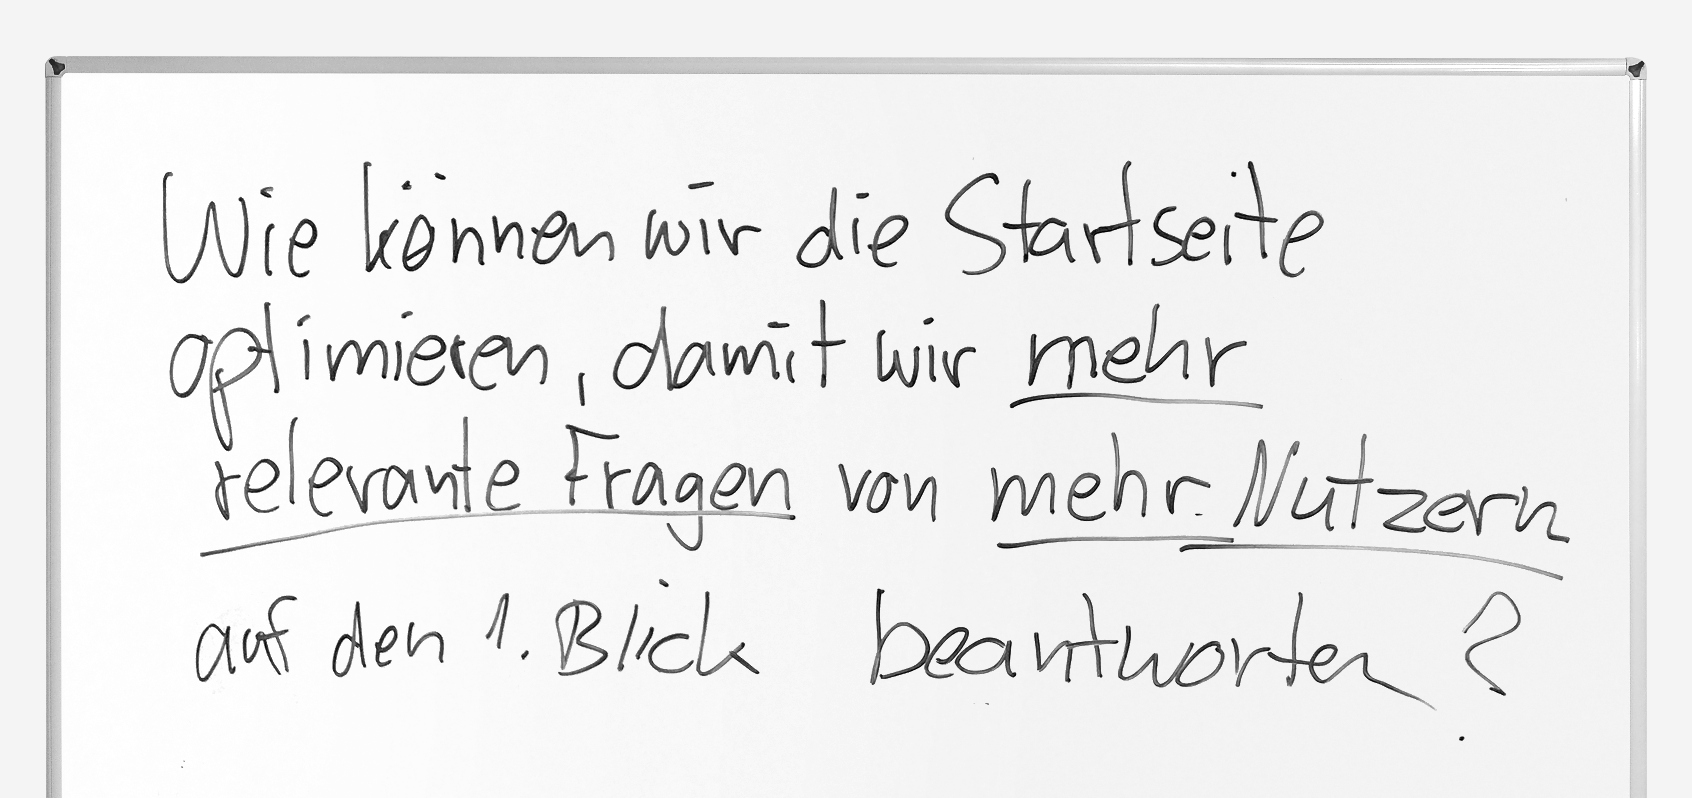 Wie können wir die Startseite
optimieren, damit wir mehr
relevante Fragen von mehr Nutzern
auf den 1. Blick beantworten?